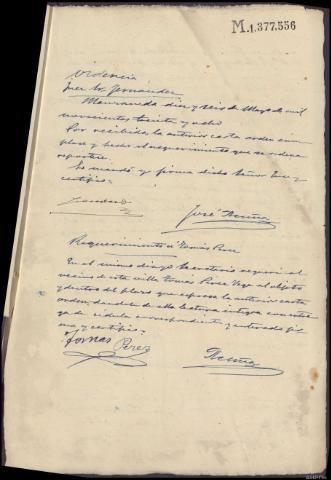 M.1.377.556
Providencia
Juez Sr. Fernández
diez y seis de Mayo de mil
novecientos treinta y ocho
Por recibida la anterior carta orden cúm
plase y hecho el requerimiento que se ordena
repórtese.
Lo mandó y firma dicho Señor Juez y
certifico.
José
Requerimiento a Tomás Perez
En el mismo día yo Secretario requerí al
vecino de esta villa Tomás Perez Vega al objeto
y dentro del plazo que expresa la anterior carta
orden, dandole de ella lectura íntegra con entre
ga de cédula correspondiente y enterado fir
ma y certifico;
Tomas Perez